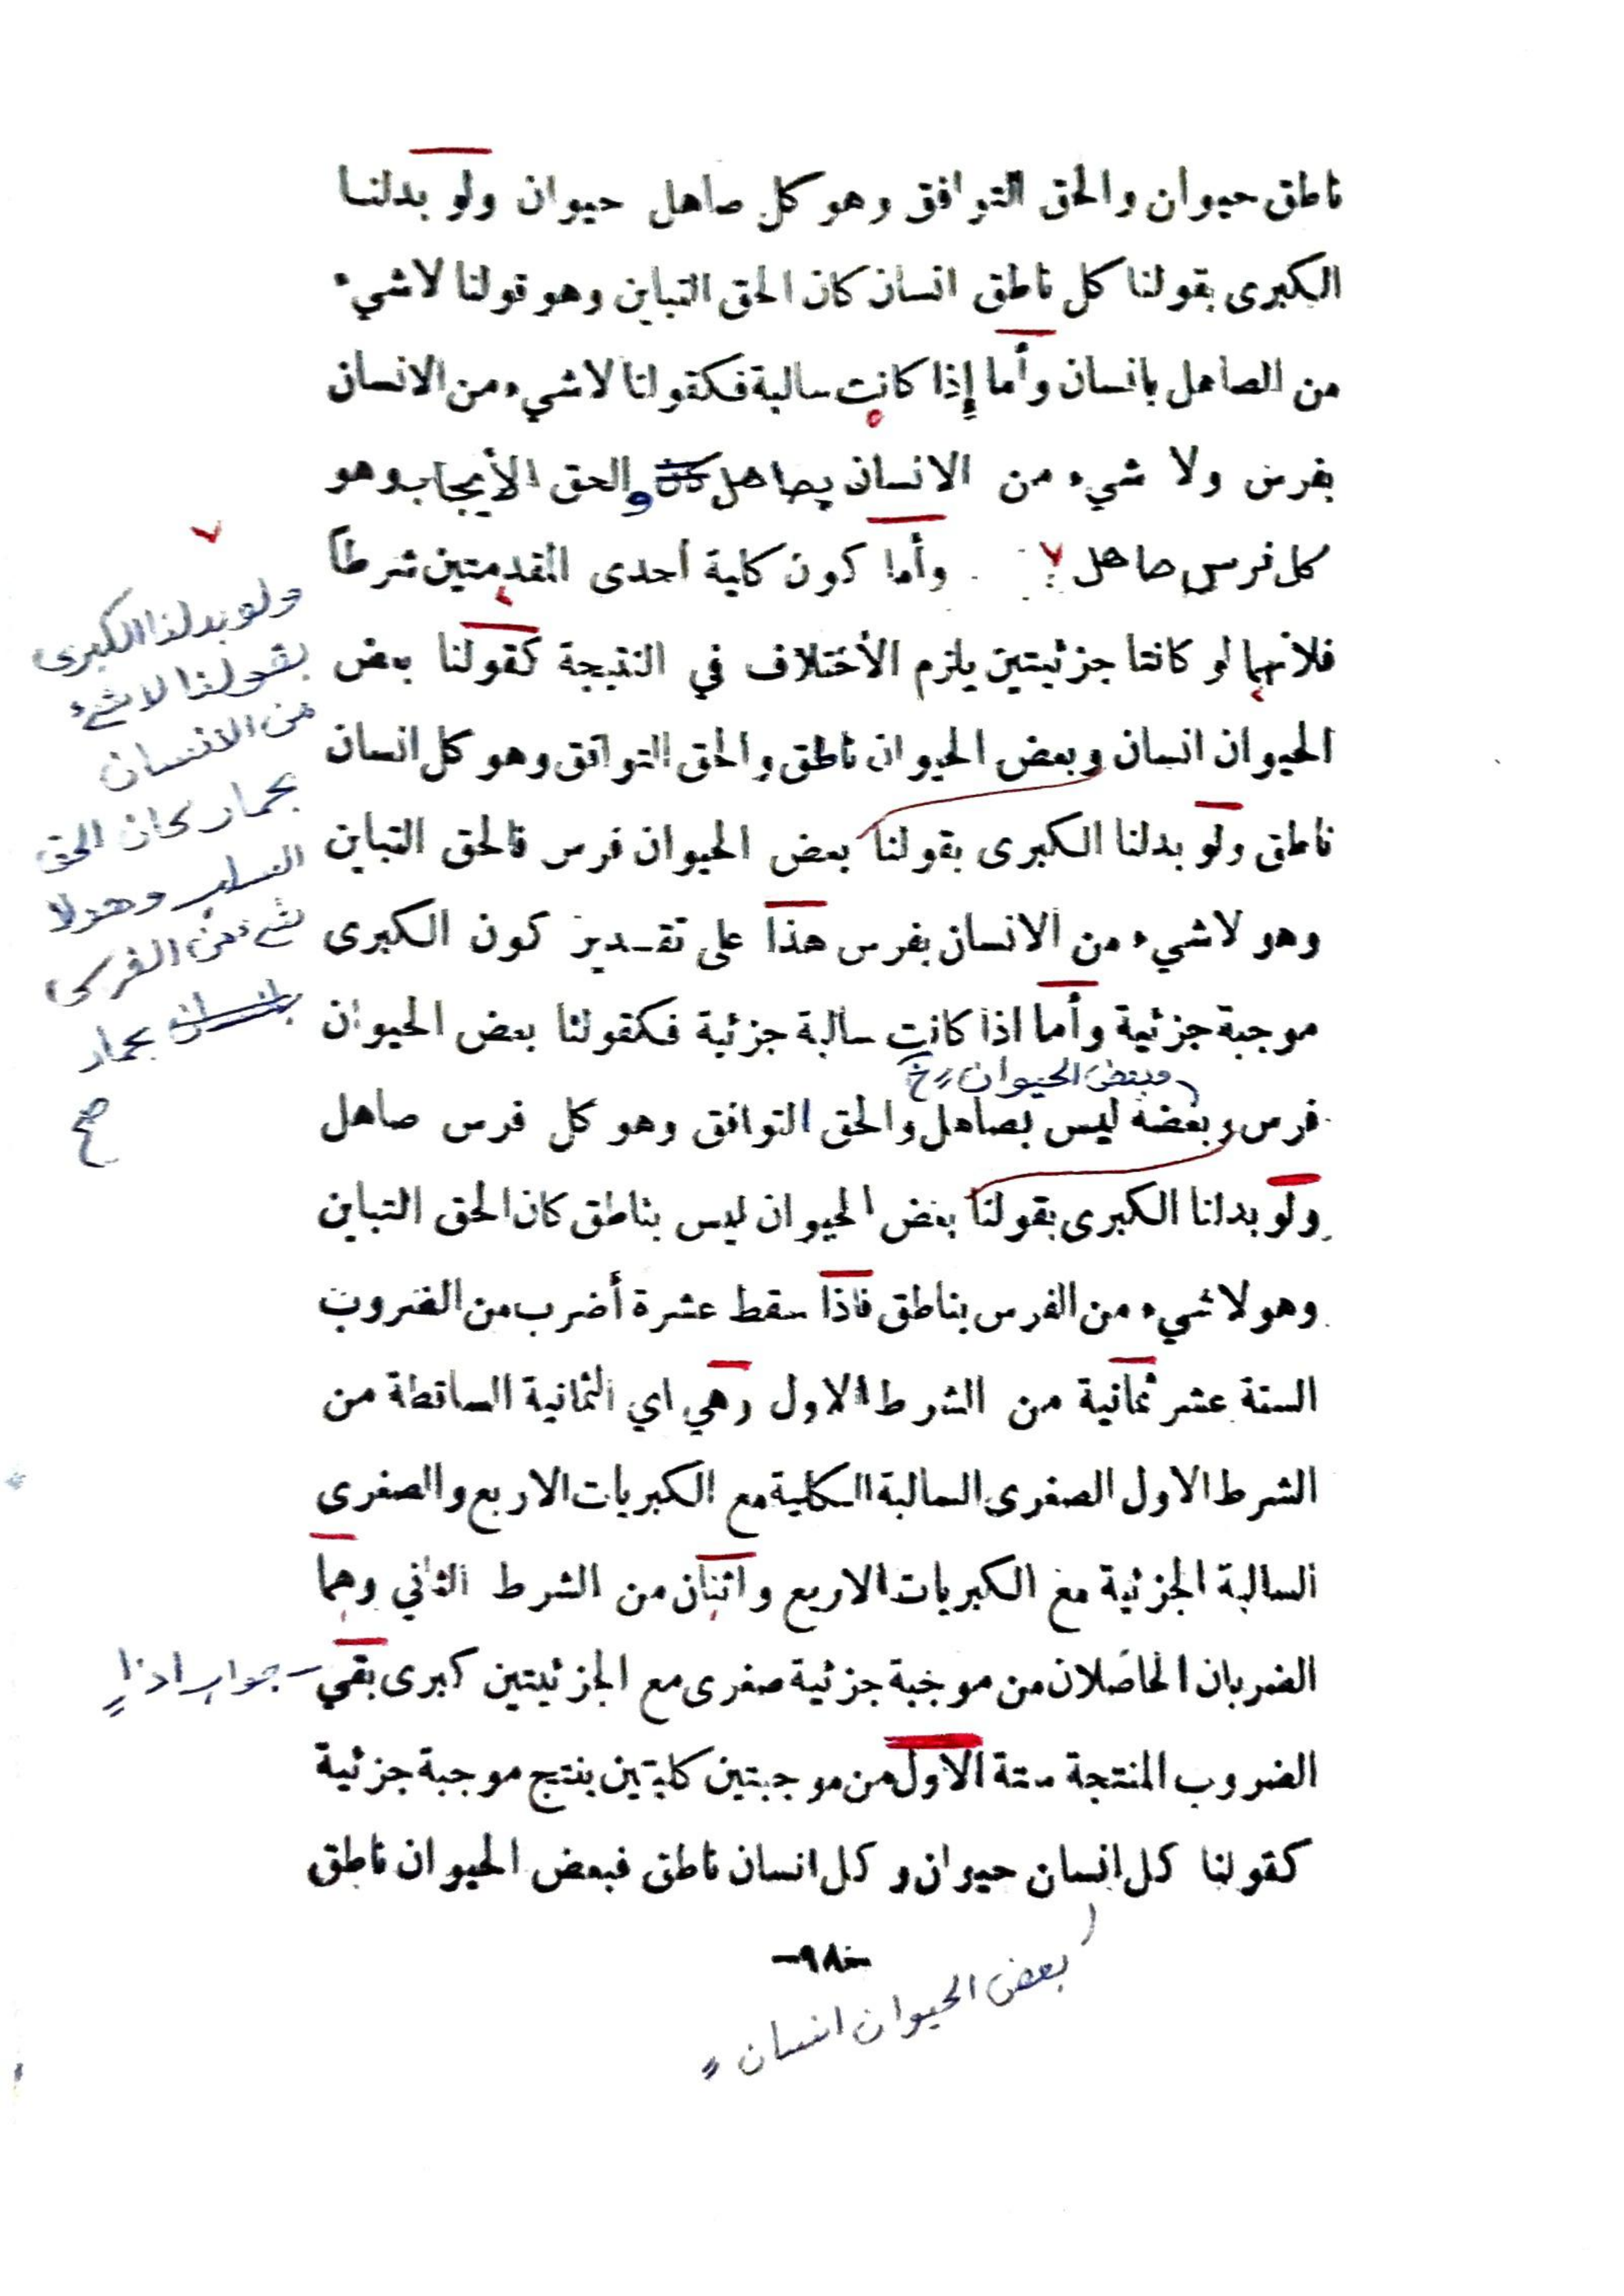 ناطق حيوان والحق التوافق وهو كل صاهل حيوان ولو بدلنا
الكبرى بقولنا كل ناطق انسان كان الحق التباين وهو قولنا لاشيء
من الصاهل بانسان وأما إذا كانت سالبة فكقولنا لاشيء من الانسان
بفرس ولا شيء من الانسان بصاهل والحق الأيجاب وهو
كل فرس صاهل وأما كون كلية أحدى المقدمتين شرطاً
فلأنهما لو كانتا جزئيتين يلزم الأختلاف في النتيجة كقولنا بعض
الحيوان انسان وبعض الحيوان ناطق والحق التوافق وهو كل انسان
ناطق ولو بدلنا الكبرى بقولنا بعض الحيوان فرس فالحق التباين
وهو لاشيء من الانسان بفرس هذا على تقدير كون الكبرى
موجبة جزئية وأما اذا كانت سالبة جزئية فكقولنا بعض الحيوان
وبعض الحيوان خ
فرس وبعضه ليس بصاهل والحق التوافق وهو كل فرس صاهل
ولو بدلنا الكبرى بقولنا بعض الحيوان ليس بناطق كان الحق التباين
وهو لاشيء من الفرس بناطق فاذا سقط عشرة أضرب من الضروب
الستة عشر ثمانية من الشرط الاول وهي اي الثمانية الساقطة من
الشرط الاول الصغرى السالبة الكلية مع الكبريات الاربع والصغرى
السالبة الجزئية مع الكبريات الاربع واثنان من الشرط الثاني وهما
الضربان الحاصلان من موجبة جزئية صغرى مع الجزئيتين كبرى بقي
الضروب المنتجة ستة الاول من موجبتين كليتين ينتج موجبة جزئية
كقولنا كل انسان حيوان وكل انسان ناطق فبعض الحيوان ناطق
-٩٨-
بعض الحيوان انسان
ولو بدلنا الكبرى
بقولنا لا شيء
من الانسان
بحمار كان الحق
السلب وهو لا
شيء من الفرس
بحمار
صح
جواب اذا